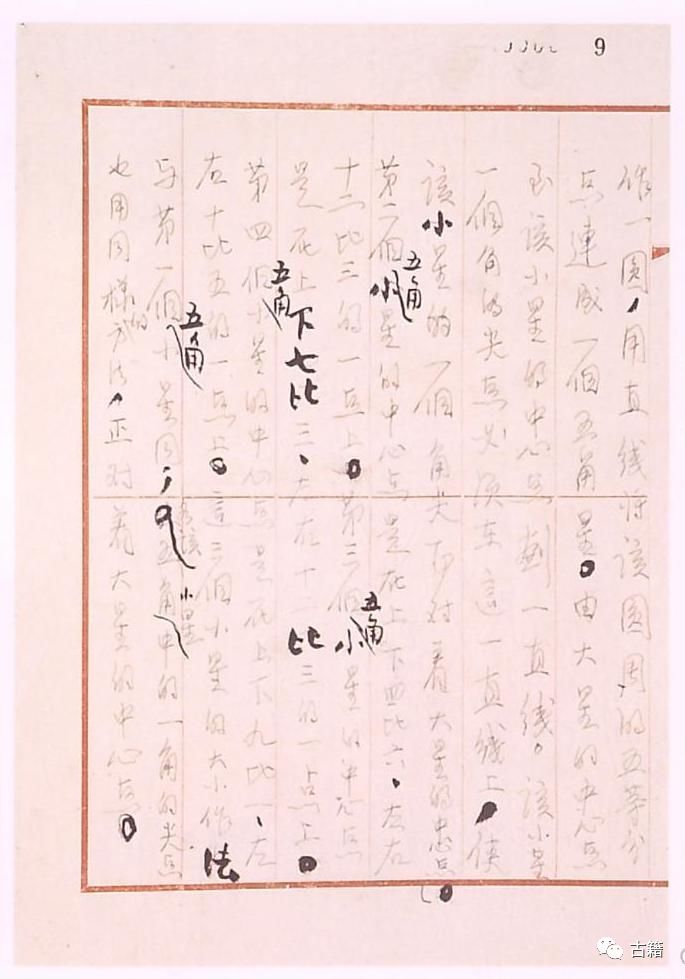 9
作一圆，用直线将该圆周的五等分
点连成一個五角星。由大星的中心点
至该小星的中心点劃一直线。该小星
一個角的尖点必须在這一直线上，使
该小星的一個角尖正对着大星的中心点。
第二個小五角星的中心点是在上下四比六、左右
十二比三的一点上。第三個小五角星的中心点
是在上下七比三、左右十二比三的一点上。
第四個小五角星的中心点是在上下九比一、左
右十比五的一点上。這三個小星的大小作法
与第一個小五角星同，各该小星五角中的一角的尖点
也用同樣的方法，正对着大星的中心点。
古籍